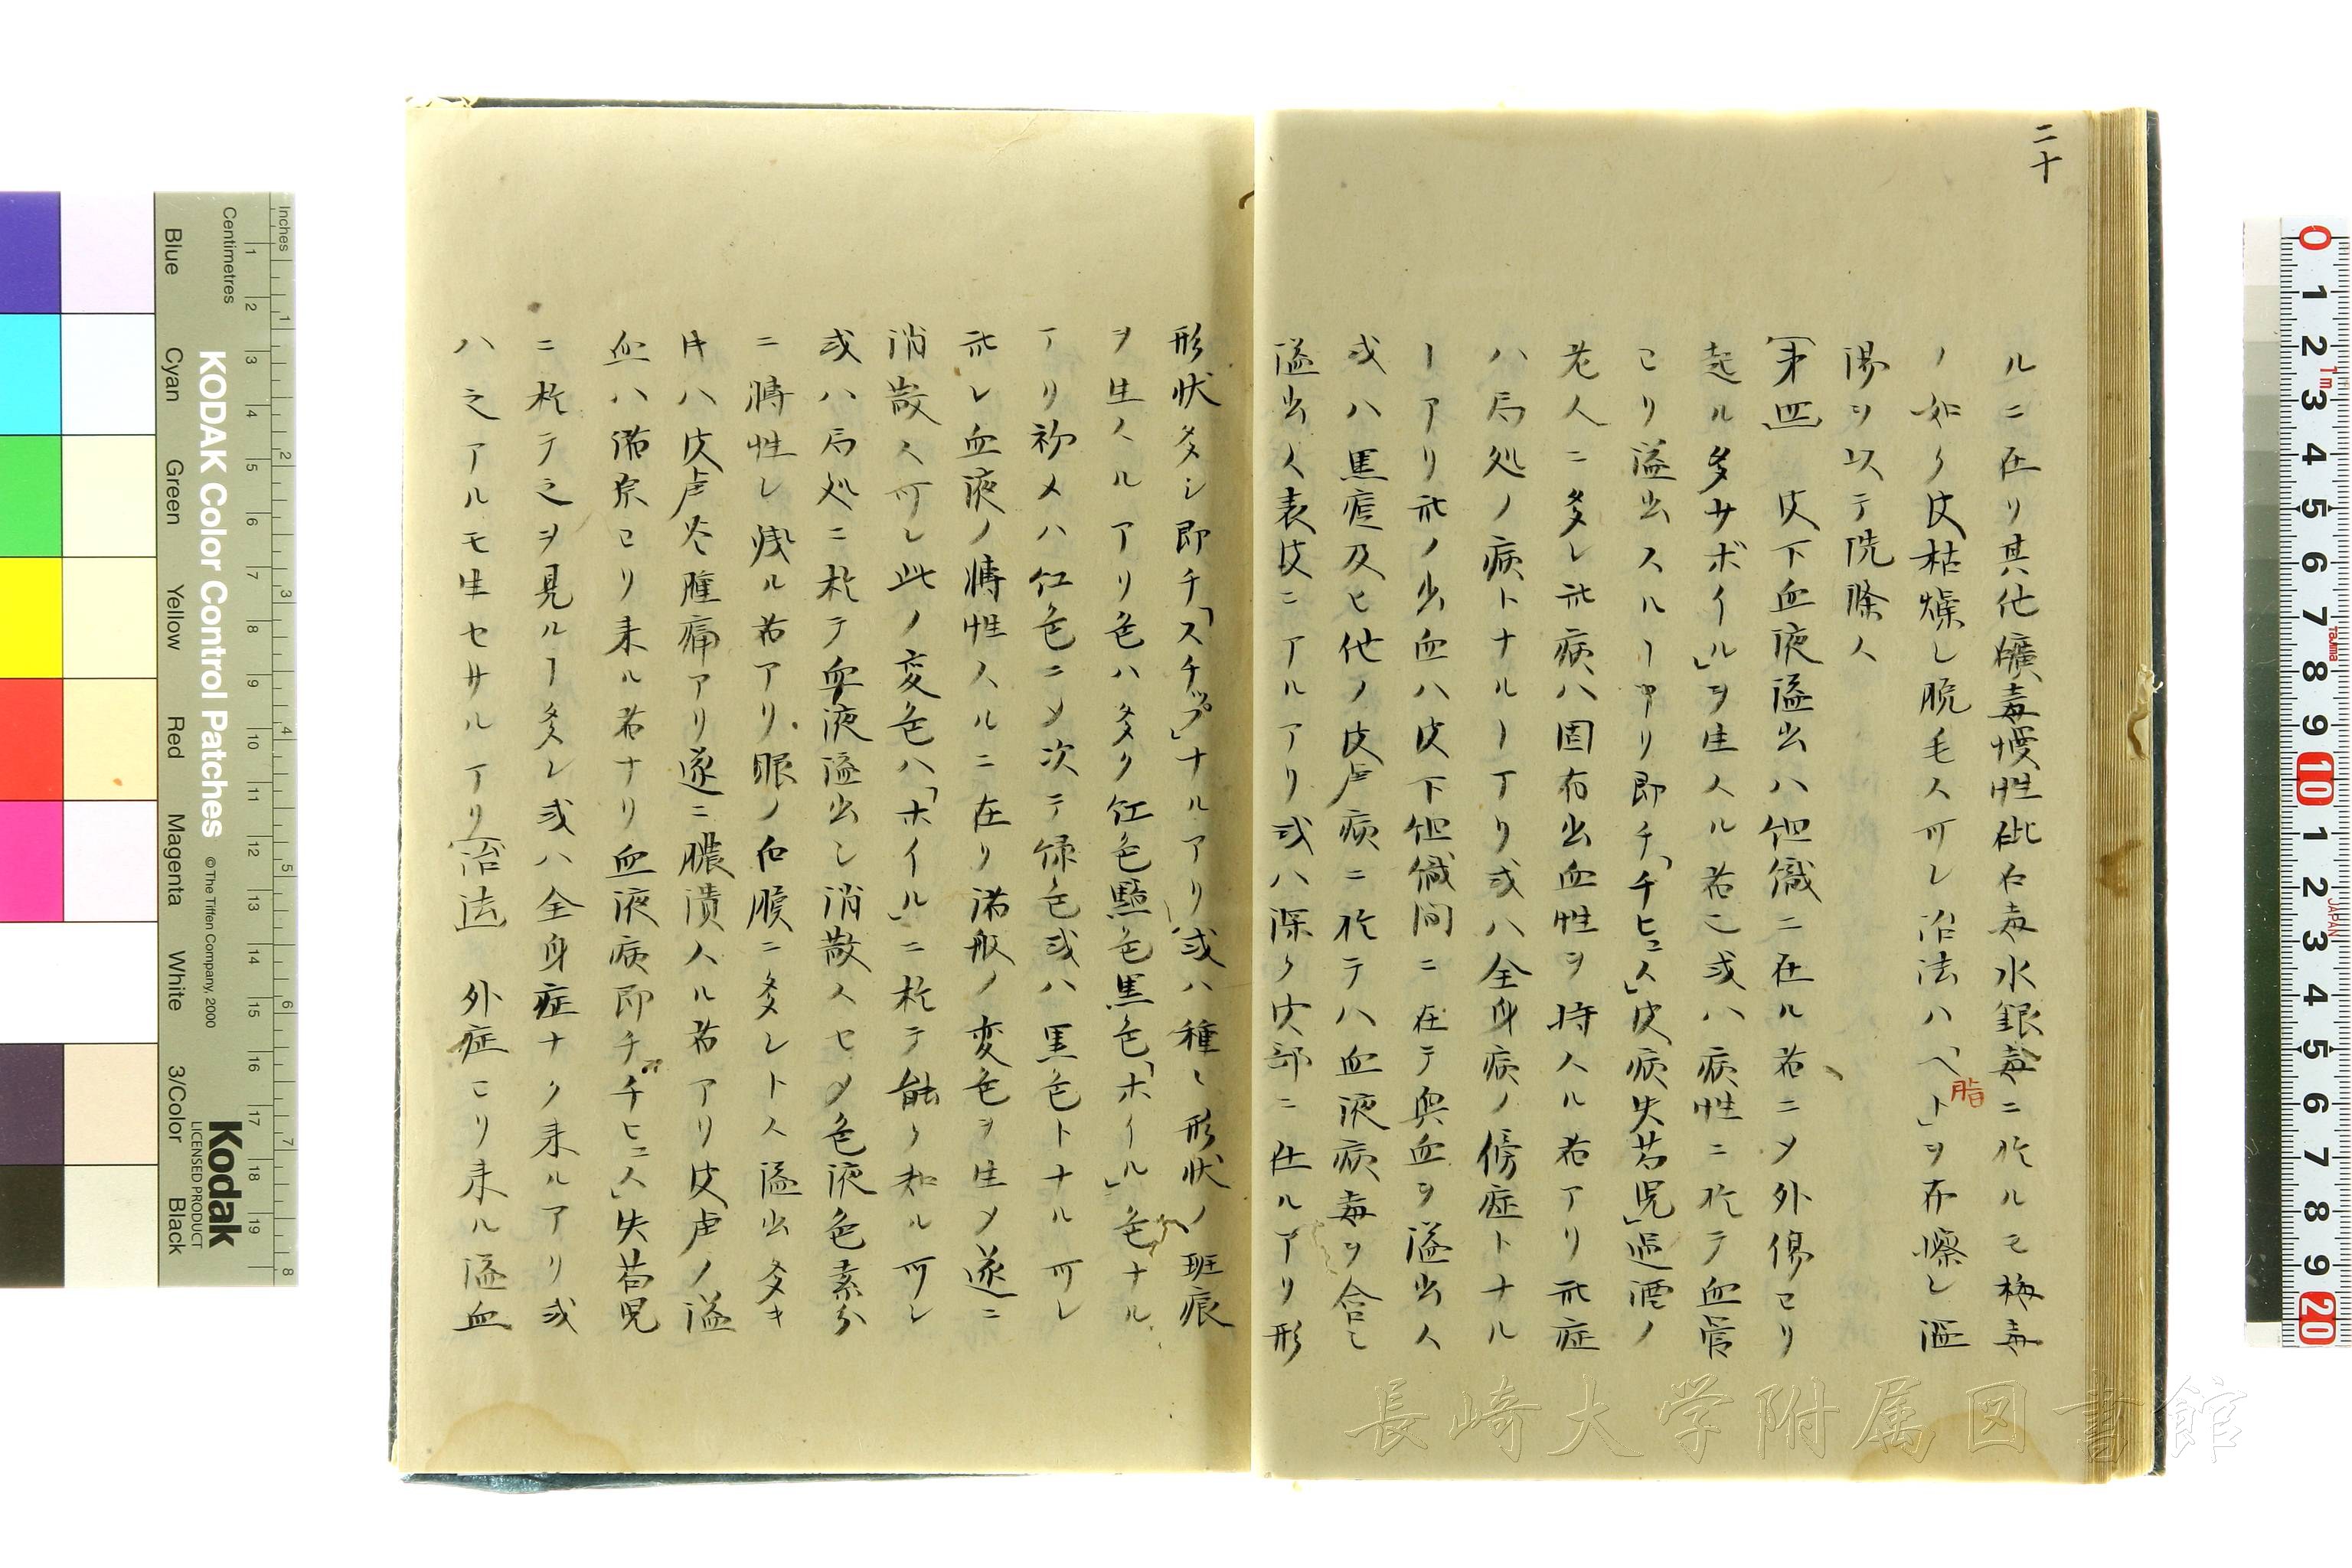 二十
ルニ在リ其他壙毒慢性砒石毒水銀毒ニ於ルモ梅毒
ノ如ク皮枯燥シ脱毛ス可シ治法ハ「ヘト」ヲ布擦シ温
脂
湯ヲ以テ洗滌ス
第四 皮下血液溢出ハ組織ニ在ル者ニメ外傷ヨリ
起ル多サボイル」ヲ生スル者也或ハ病性ニ於テ血管
ヨリ溢出スルヿアリ即チ「チヒュス」皮病失苔児」過酒ノ
老人ニ多シ此病ハ固有出血性ヲ時スル者アリ此症
ハ局処ノ病トナルヿアリ或ハ全身病ノ傍症トナル
ヿアリ此ノ出血ハ皮下組織間ニ在テ與血ヲ溢出ス
或ハ黒疸及ヒ他ノ皮膚病ニ於テハ血液病毒ヲ含ミ
溢出ス表皮ニアルアリ或ハ深ク皮部ニ在ルアリ形
形状多シ即チ「スチップ」ナルアリ或ハ種々形状ノ斑痕
ヲ生スルアリ色ハ多ク紅色藍色黒色「ホイル」色ナル
アリ初メハ紅色ニメ次テ緑色或ハ黒色トナル可シ
此レ血液ノ轉性スルニ在リ諸般ノ変色ヲ生メ遂ニ
消散ス可シ此ノ変色ハ「ホイル」ニ於テ能ク知ル可シ
或ハ局処ニ於テ血液溢出シ消散スセメ色液色素分
ニ轉性シ残ル者アリ眼ノ白膜ニ多シトス溢出多キ
片ハ皮膚炎腫痛アリ遂ニ膿潰スル者アリ皮膚ノ溢
血ハ諸原ヨリ来ル者ナリ血液病即チ「チヒュス」失苔児
ニ於テ之ヲ見ルヿ多シ或ハ全身症ナク来ルアリ或
ハ之アルモ生セサルアリ治法 外症ヨリ来ル溢血
Inches
Centimetres
KODAK Color Control Patches
© The Tiffen Company, 2000
Kodak
LICENSED PRODUCT
Blue Cyan Green Yellow Red Magenta White 3/Color Black
長崎大学附属図書館